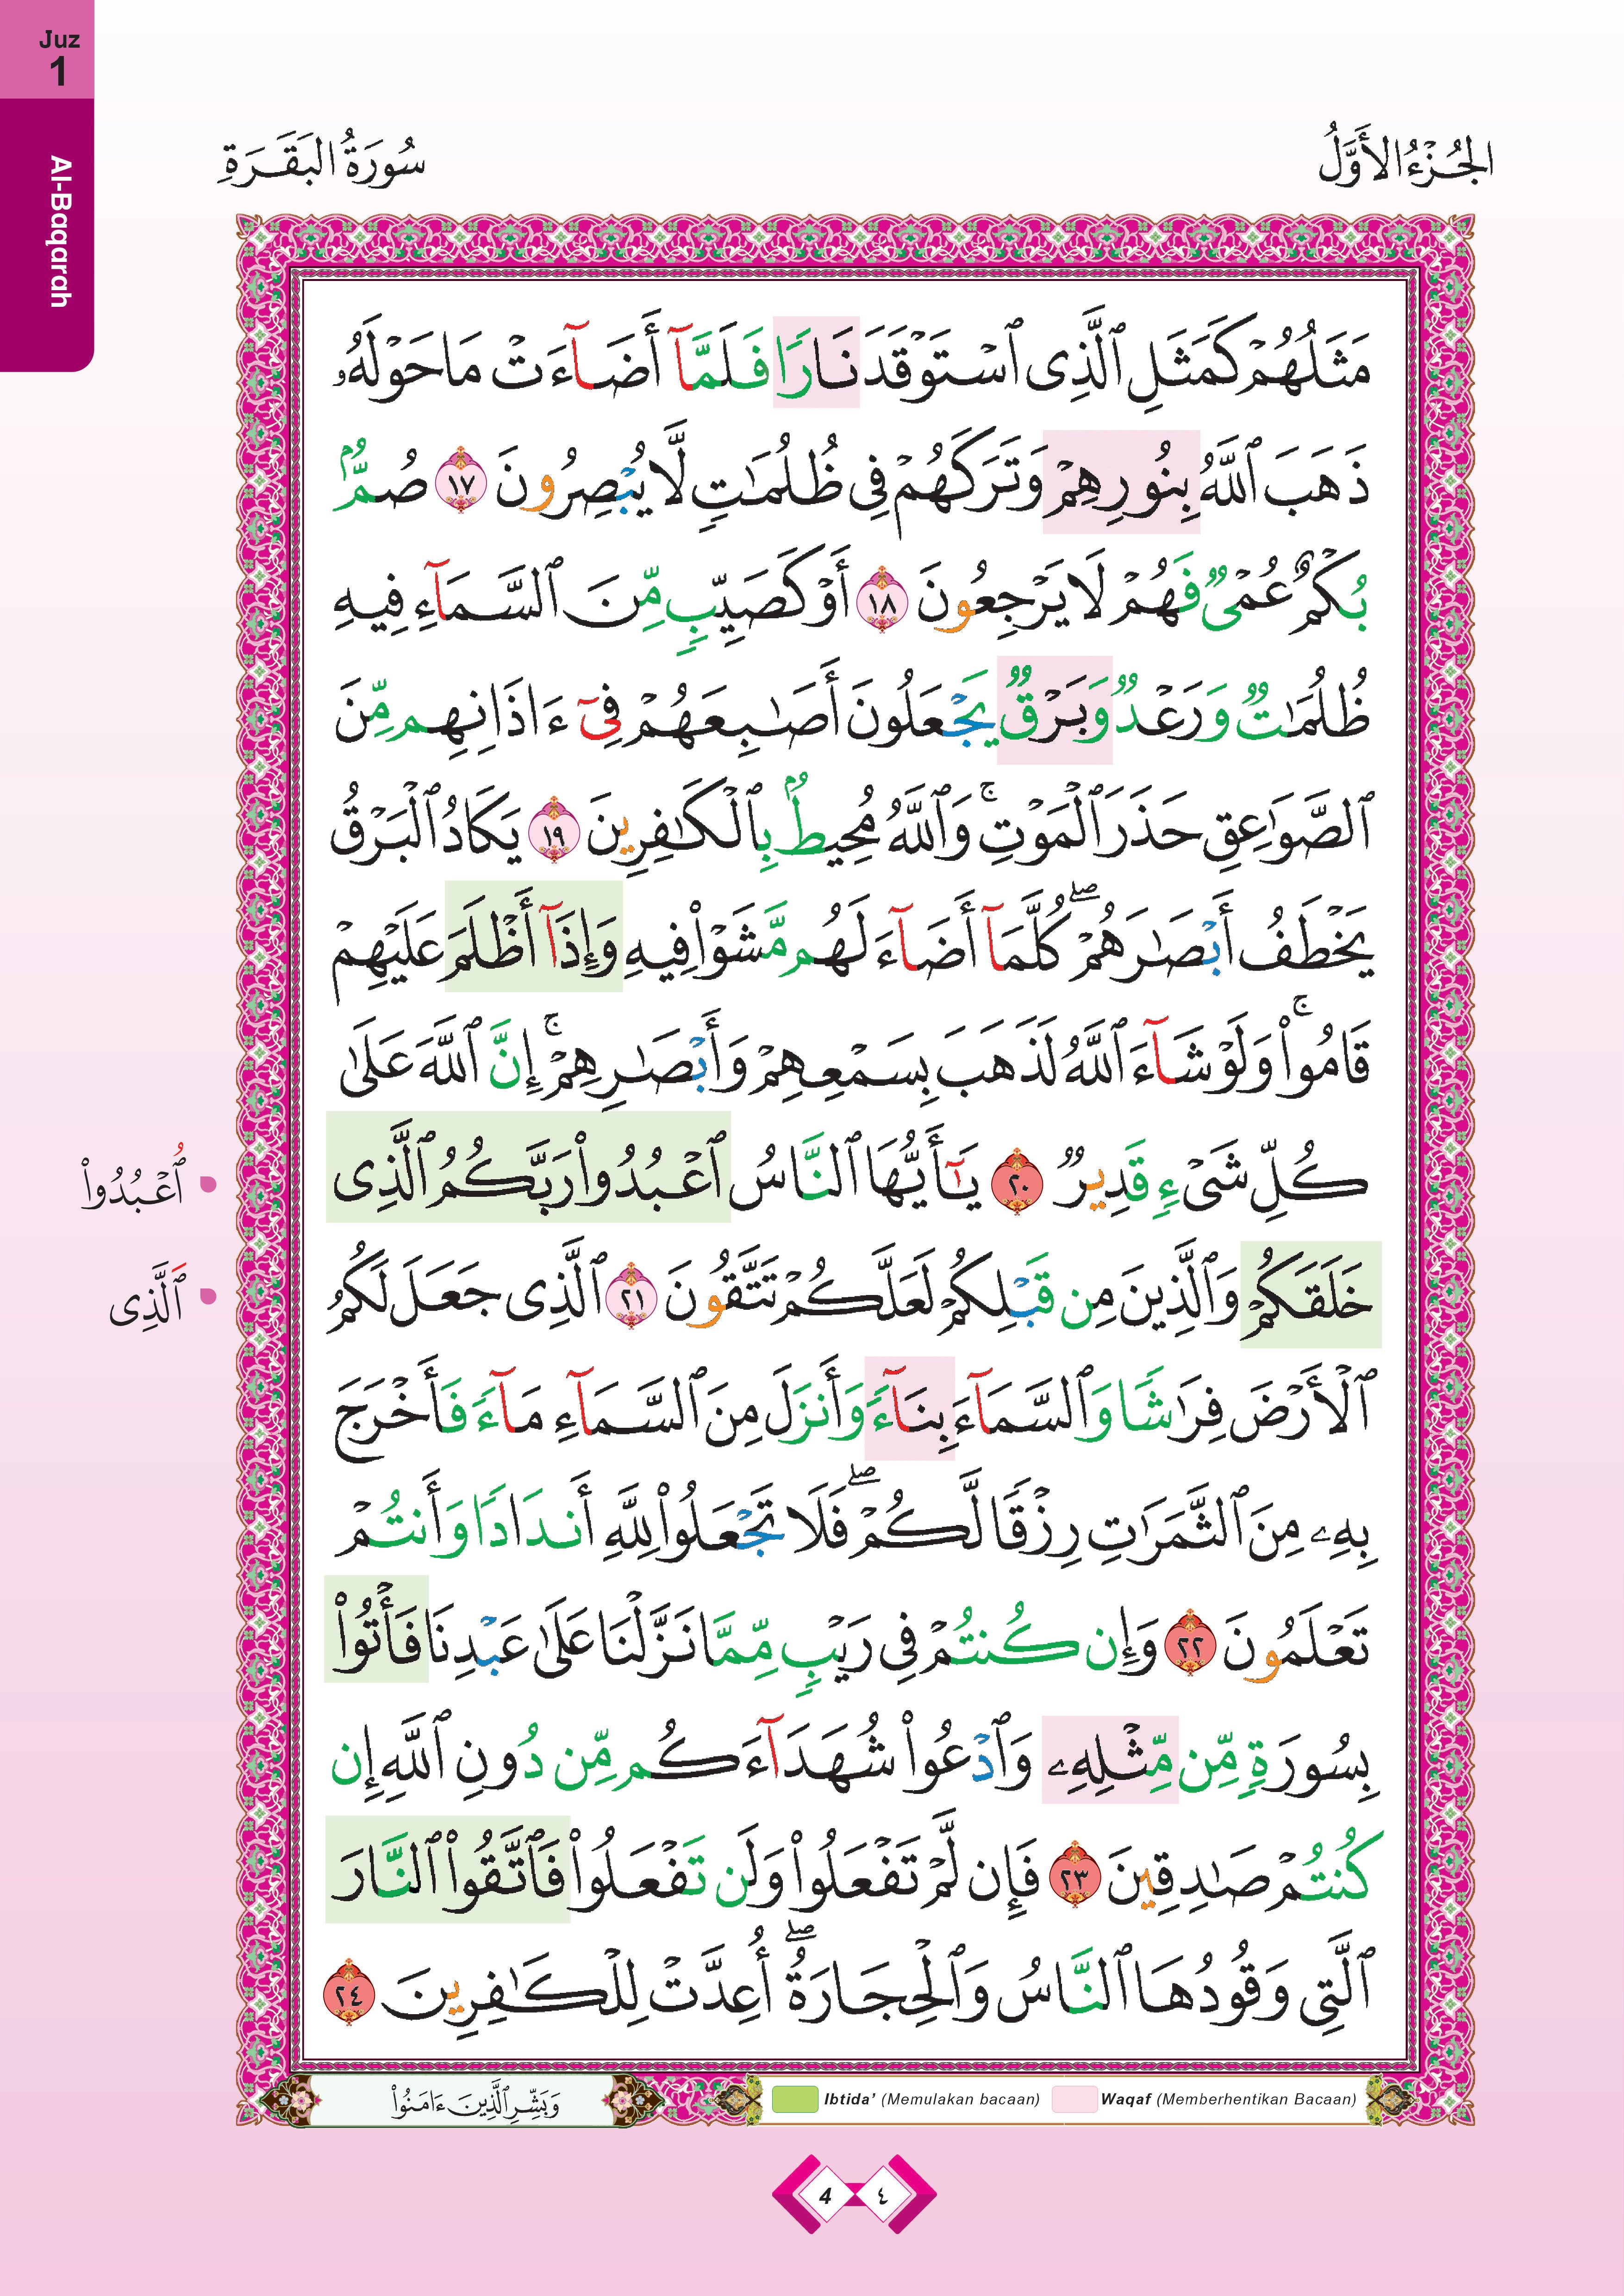 Juz
1
Al-Baqarah
الجُزْءُ الأَوَّلُ
سُورَةُ البَقَرَةِ
مَثَلُهُمْ كَمَثَلِ ٱلَّذِى ٱسْتَوْقَدَ نَارًا فَلَمَّآ أَضَآءَتْ مَا حَوْلَهُۥ
ذَهَبَ ٱللَّهُ بِنُورِهِمْ وَتَرَكَهُمْ فِى ظُلُمَٰتٍ لَّا يُبْصِرُونَ ١٧ صُمٌّۢ
بُكْمٌ عُمْىٌ فَهُمْ لَا يَرْجِعُونَ ١٨ أَوْ كَصَيِّبٍ مِّنَ ٱلسَّمَآءِ فِيهِ
ظُلُمَٰتٌ وَرَعْدٌ وَبَرْقٌ يَجْعَلُونَ أَصَٰبِعَهُمْ فِىٓ ءَاذَانِهِم مِّنَ
ٱلصَّوَٰعِقِ حَذَرَ ٱلْمَوْتِ ۚ وَٱللَّهُ مُحِيطٌۢ بِٱلْكَٰفِرِينَ ١٩ يَكَادُ ٱلْبَرْقُ
يَخْطَفُ أَبْصَٰرَهُمْ ۖ كُلَّمَآ أَضَآءَ لَهُم مَّشَوْا۟ فِيهِ وَإِذَآ أَظْلَمَ عَلَيْهِمْ
قَامُوا۟ ۚ وَلَوْ شَآءَ ٱللَّهُ لَذَهَبَ بِسَمْعِهِمْ وَأَبْصَٰرِهِمْ ۚ إِنَّ ٱللَّهَ عَلَىٰ
كُلِّ شَىْءٍ قَدِيرٌ ٢٠ يَٰٓأَيُّهَا ٱلنَّاسُ ٱعْبُدُوا۟ رَبَّكُمُ ٱلَّذِى
خَلَقَكُمْ وَٱلَّذِينَ مِن قَبْلِكُمْ لَعَلَّكُمْ تَتَّقُونَ ٢١ ٱلَّذِى جَعَلَ لَكُمُ
ٱلْأَرْضَ فِرَٰشًا وَٱلسَّمَآءَ بِنَآءً وَأَنزَلَ مِنَ ٱلسَّمَآءِ مَآءً فَأَخْرَجَ
بِهِۦ مِنَ ٱلثَّمَرَٰتِ رِزْقًا لَّكُمْ ۖ فَلَا تَجْعَلُوا۟ لِلَّهِ أَندَادًا وَأَنتُمْ
تَعْلَمُونَ ٢٢ وَإِن كُنتُمْ فِى رَيْبٍ مِّمَّا نَزَّلْنَا عَلَىٰ عَبْدِنَا فَأْتُوا۟
بِسُورَةٍ مِّن مِّثْلِهِۦ وَٱدْعُوا۟ شُهَدَآءَكُم مِّن دُونِ ٱللَّهِ إِن
كُنتُمْ صَٰدِقِينَ ٢٣ فَإِن لَّمْ تَفْعَلُوا۟ وَلَن تَفْعَلُوا۟ فَٱتَّقُوا۟ ٱلنَّارَ
ٱلَّتِى وَقُودُهَا ٱلنَّاسُ وَٱلْحِجَارَةُ ۖ أُعِدَّتْ لِلْكَٰفِرِينَ ٢٤
ٱُعْبُدُوا۟
ٱَلَّذِى
وَبَشِّرِ ٱلَّذِينَ ءَامَنُوا۟
Ibtida' (Memulakan bacaan) Waqaf (Memberhentikan Bacaan)
4 ٤